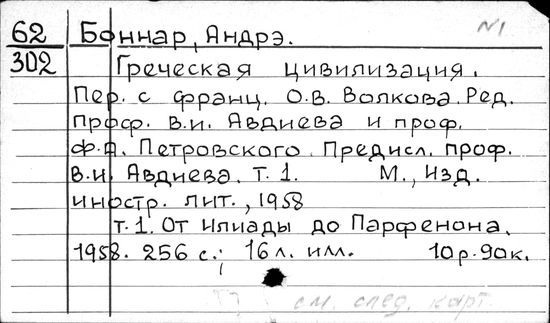 62 Боннар, Андрэ. N1
302 Греческая цивилизация.
Пер. с франц. О.В. Волкова. Ред.
проф. В.И. Авдиева и проф.
Ф.А. Петровского. Предисл. проф.
В.И. Авдиева. Т. 1. М., Изд.
иностр. лит., 1958
т. 1. От Илиады до Парфенона.
1958. 256 с.; 16 л. илл. 10р.90к.
см. след. карт.